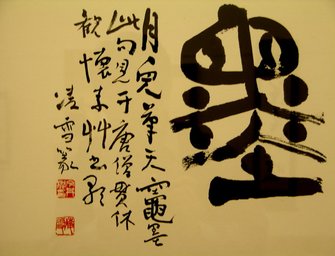 墨
月兔筆天竈墨
此句見于唐僧貫休
觀懷素艸書歌
凌雪篆